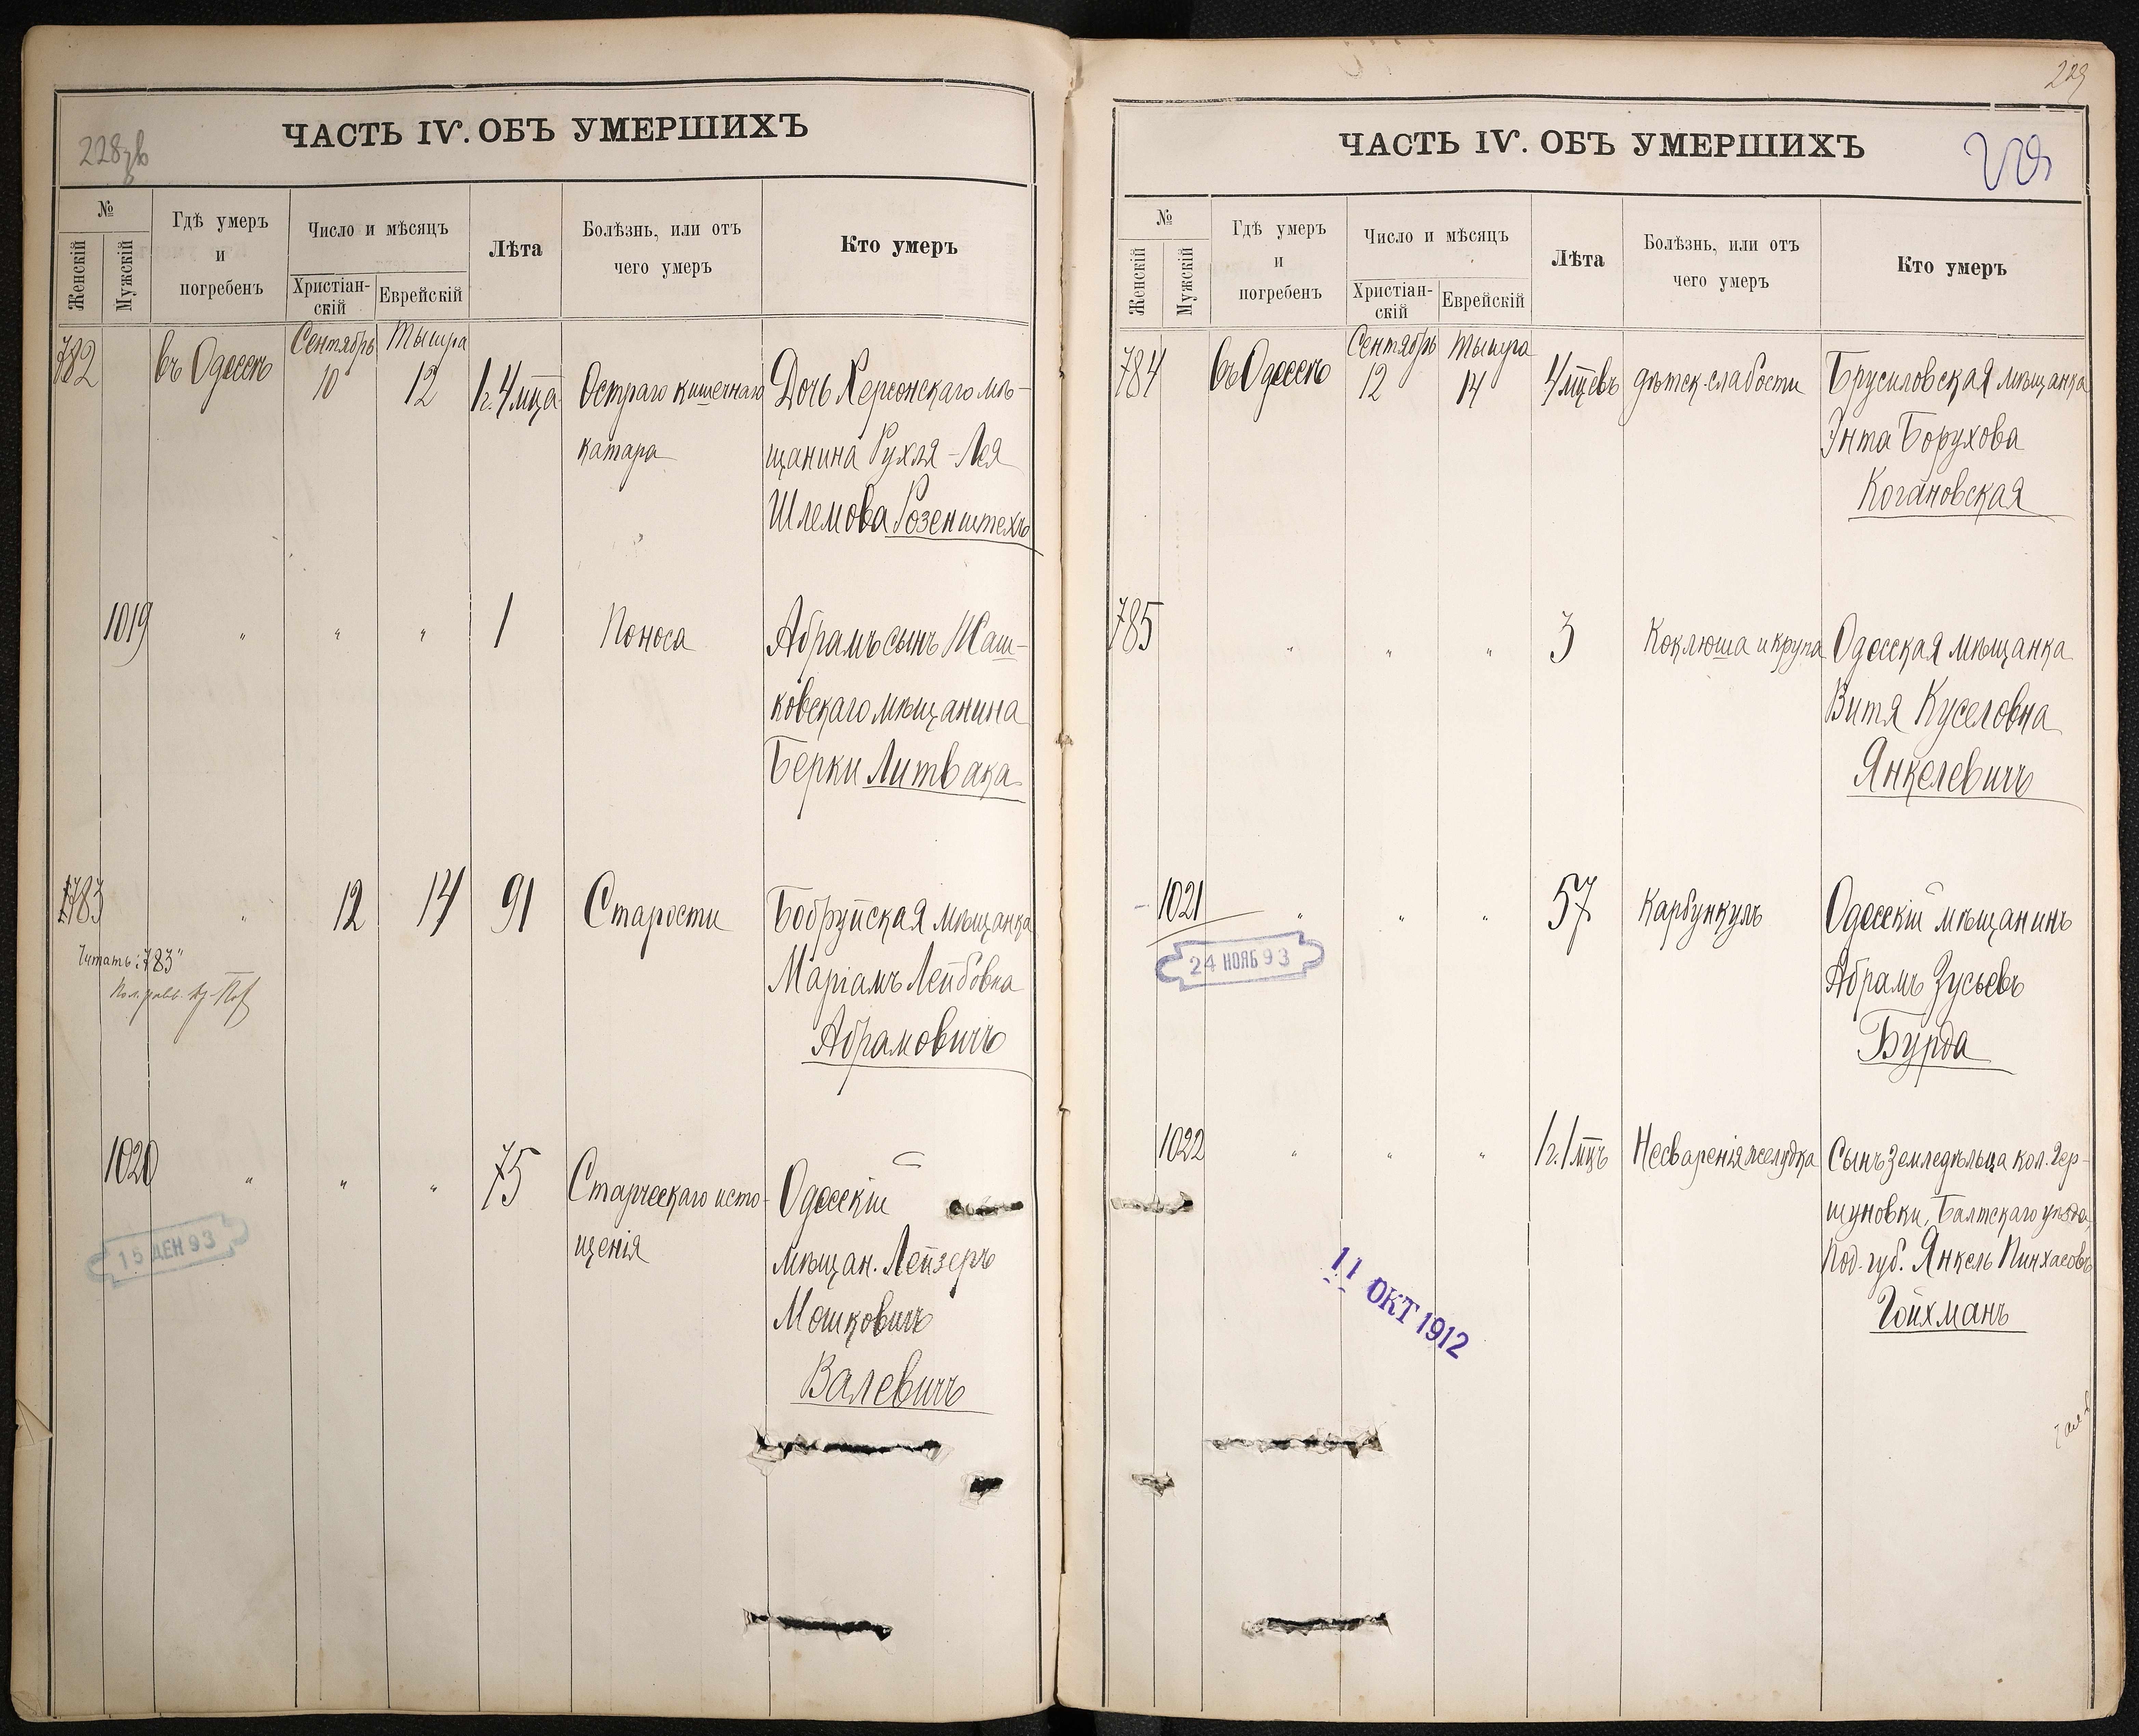 ЧАСТЬ IV. ОБЪ УМЕРШИХЪ
№
Женскій
Мужскій
Гдѣ умеръ
и
погребенъ
Число и мѣсяцъ
Христіан-
скій
Еврейскій
Лѣта
Болѣзнь, или отъ
чего умеръ
Кто умеръ
Сентябрь Тышра
782 въ Одессѣ 10 12 1 г. 4 мца Остраго кишечнаго Дочь Херсонскаго мѣ-
катара щанина Рухля-Лея
Шлемова Розенштехъ
1019 " " " 1 Поноса Абрамъ сынъ Жаш-
ковскаго мѣщанина
Берки Литвака
783 " 12 14 91 Старости Бобруйская мѣщанка
Читать: „783" Маріамъ Лейбовна
Абрамовичъ
1020 " " " 75 Старческаго исто- Одесскій
щенія мѣщан. Лейзеръ
Мошковичъ
Валевичъ
15 ДЕК 93
229
ЧАСТЬ IV. ОБЪ УМЕРШИХЪ
№
Женскій
Мужскій
Гдѣ умеръ
и
погребенъ
Число и мѣсяцъ
Христіан-
скій
Еврейскій
Лѣта
Болѣзнь, или отъ
чего умеръ
Кто умеръ
Сентябрь Тышра
784 въ Одессѣ 12 14 4 мцевъ дѣтск. слабости Брусиловская мѣщанка
Энта Борухова
Когановская
785 " " " 3 Коклюша и крупа Одесская мѣщанка
Витя Куселовна
Янкелевичъ
1021 " " " 57 Карбункулъ Одесскій мѣщанинъ
24 НОЯБ 93 Абрамъ Зусьевъ
Бурда
1022 " " " 1 г. 1 мцъ Несваренія желудка Сынъ земледѣльца кол. Гер-
шуновки, Балтскаго уѣзда,
Под. губ. Янкель Пинхасовъ
Гойхманъ
11 ОКТ 1912